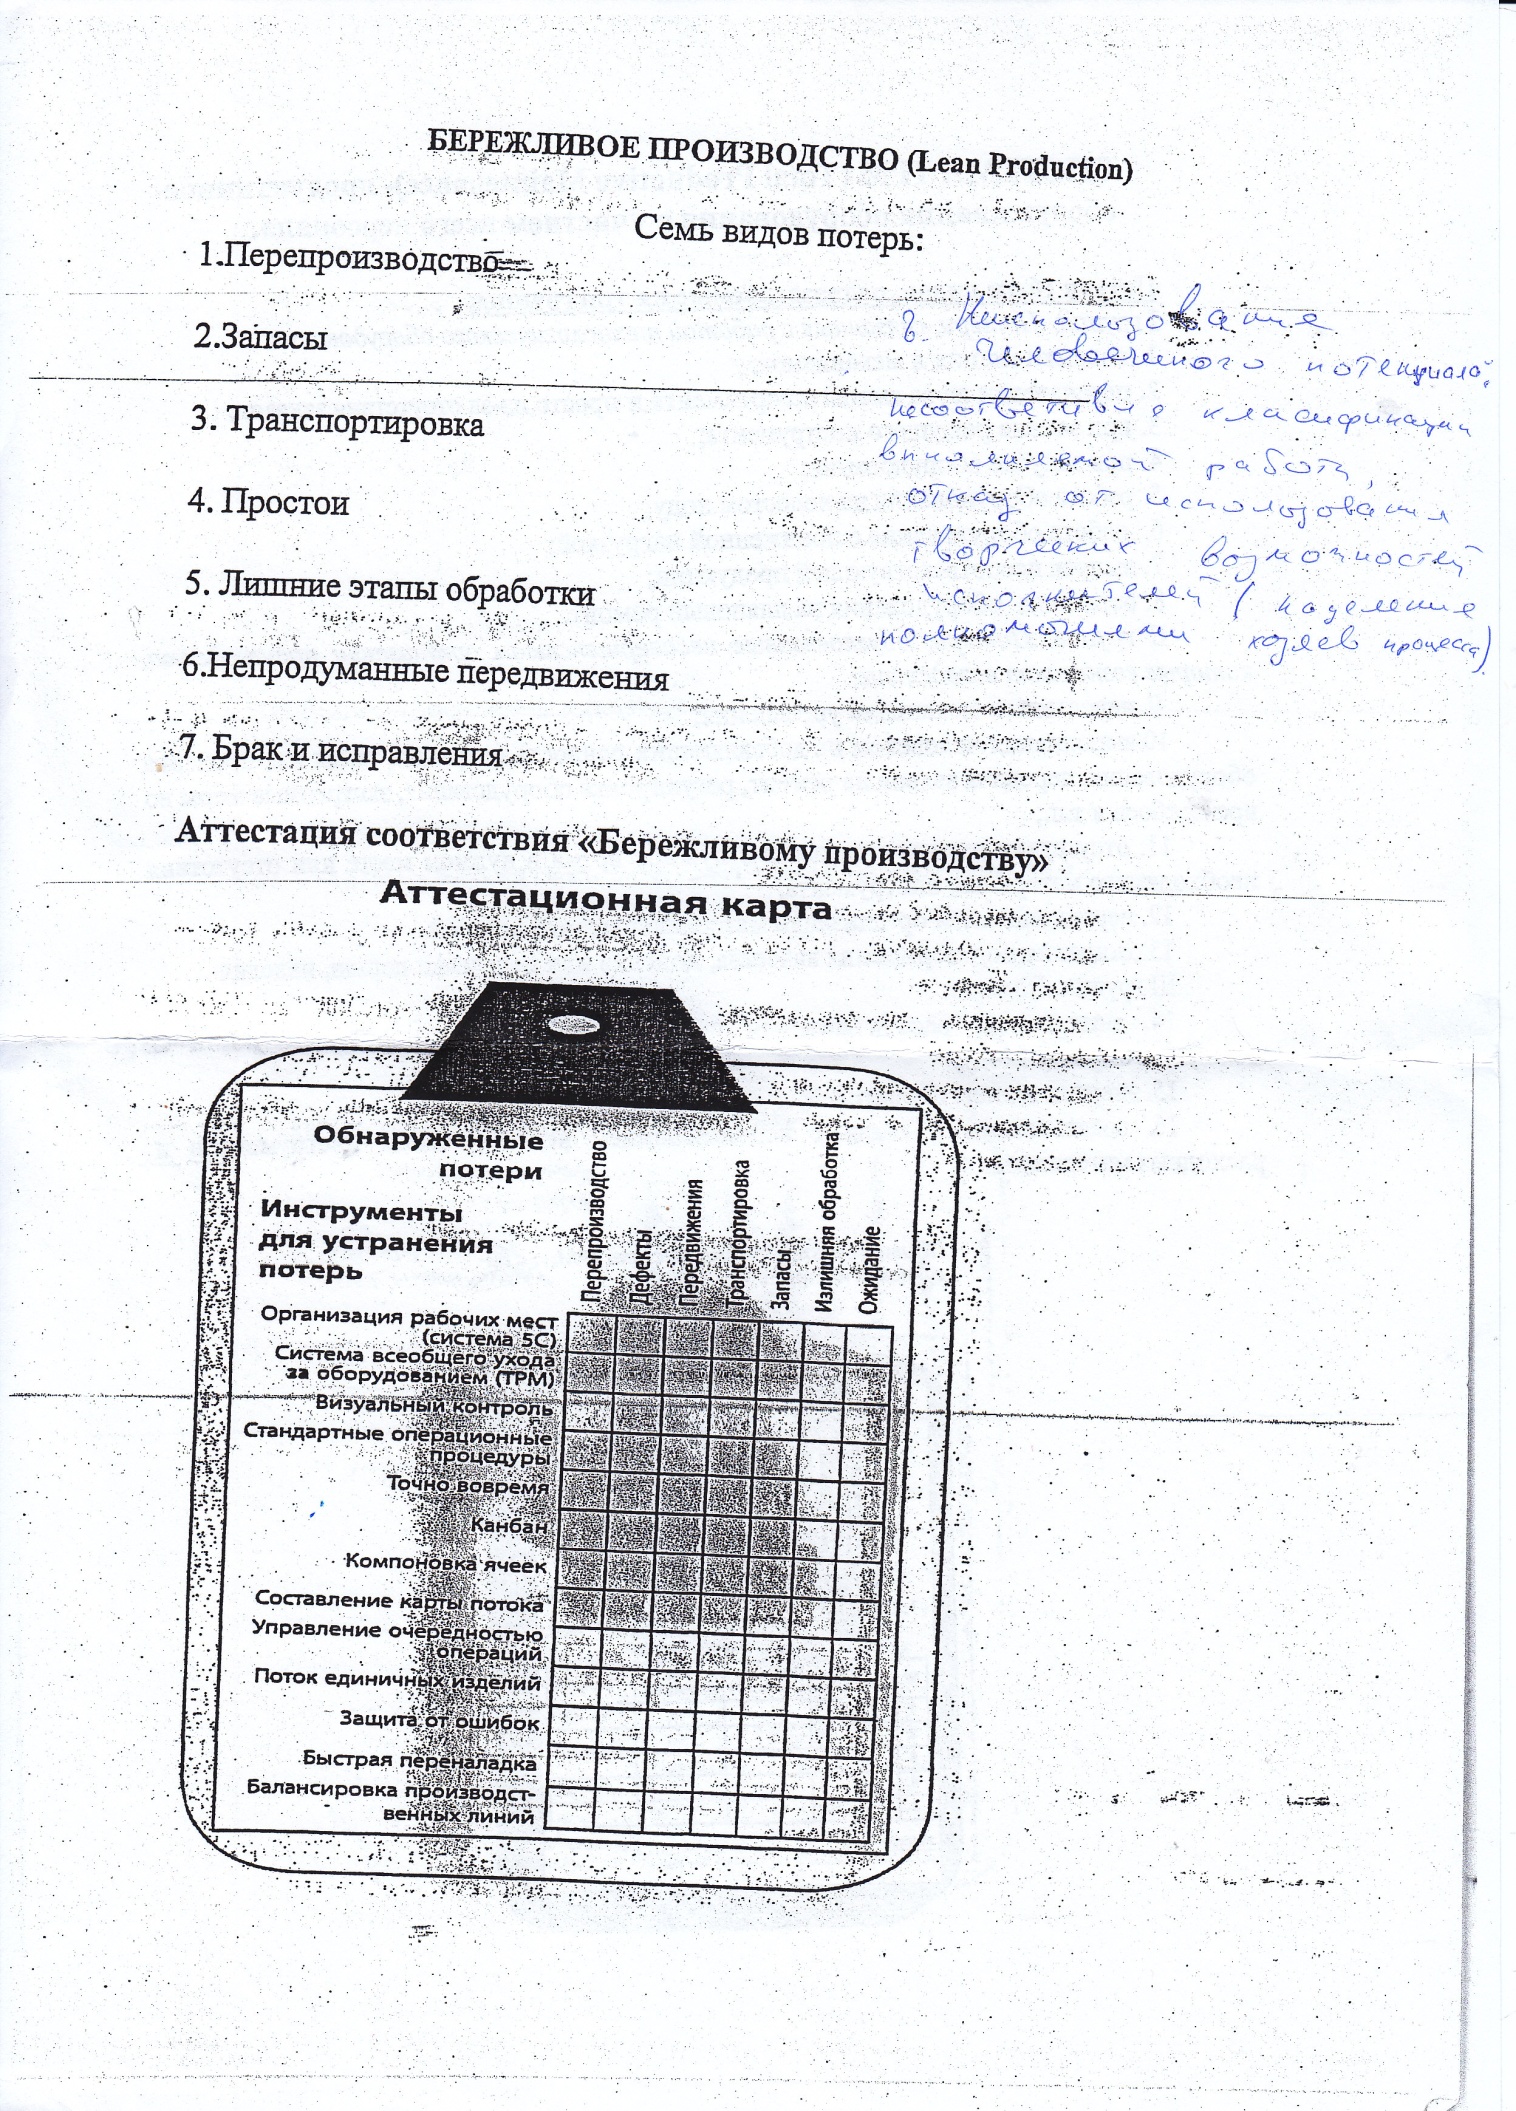 БЕРЕЖЛИВОЕ ПРОИЗВОДСТВО (Lean Production)
Семь видов потерь:
1.Перепроизводство
2.Запасы
3. Транспортировка
4. Простои
5. Лишние этапы обработки
6.Непродуманные передвижения
7. Брак и исправления
человеческого потенциала.
несоответствие класификации
выполняемой работы,
отказ от использования
творческих возможностей
исполнителей (наделение
полномочиями хозяев процесса)
Аттестация соответствия «Бережливому производству»
Аттестационная карта
Обнаруженные
потери
Инструменты
для устранения
потерь
Перепроизводство
Дефекты
Передвижения
Транспортировка
Запасы
Излишняя обработка
Ожидание
Организация рабочих мест
(система 5С)
Система всеобщего ухода
за оборудованием (ТРМ)
Визуальный контроль
Стандартные операционные
процедуры
Точно вовремя
Канбан
Компоновка ячеек
Составление карты потока
Управление очередностью
операций
Поток единичных изделий
Защита от ошибок
Быстрая переналадка
Балансировка производст-
венных линий